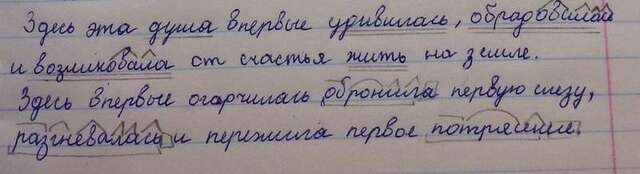 Здесь эта душа впервые удивилась, обрадовилась
и возликовала от счастья жить на земле.
Здесь впервые огорчилась обронила первую слезу,
разгневалась и пережила первое потрясение.